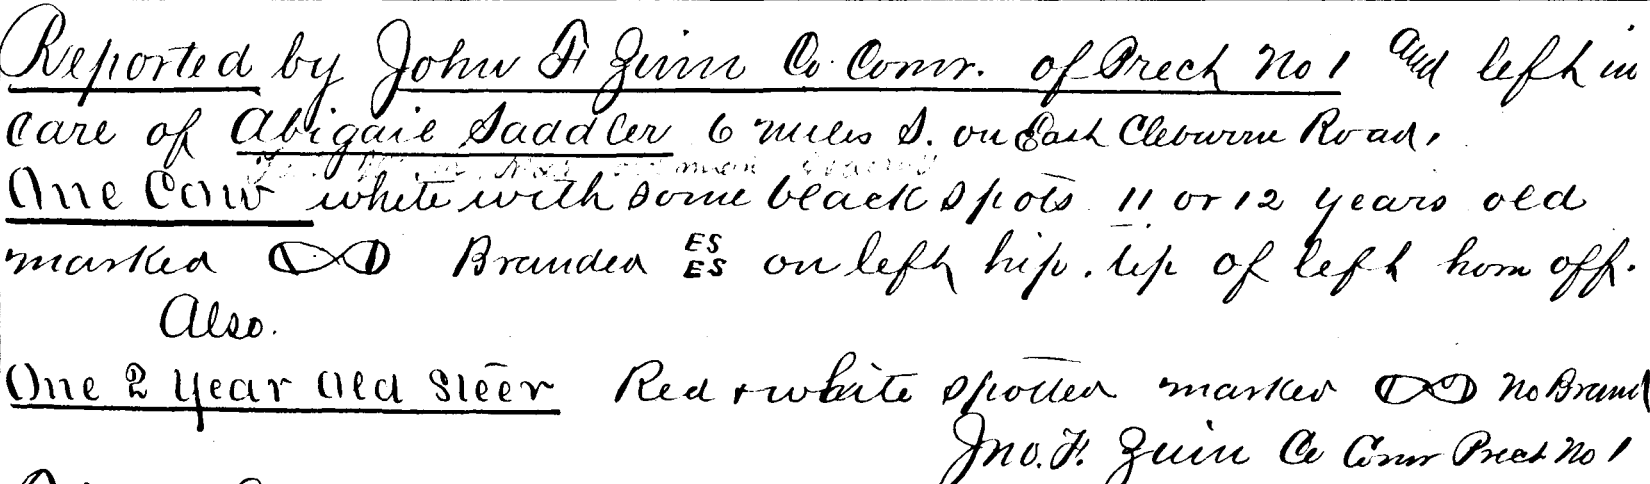 Reported by John F Zinn Co. Comr. of Prect No 1 and left in
care of Abigail Saddler 6 miles S. on East Cleburne Road.
One Cow white with some black spots 11 or 12 years old
marked Branded ES ES on left hip. tip of left horn off.
Also.
One 2 year old Steer Red + white spotted marked No Brand
Jno. F. Zinn Co Comr Prect No 1